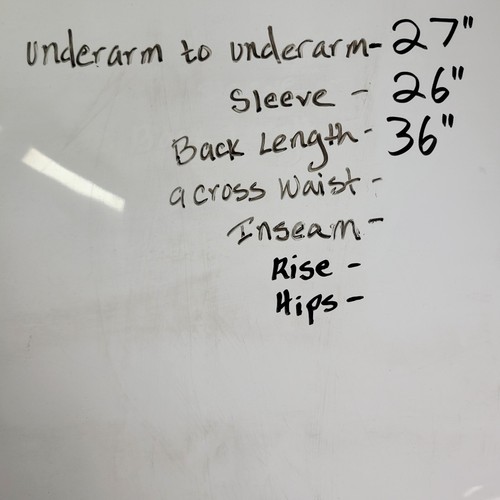 underarm to underarm- 27"
Sleeve - 26"
Back Length- 36"
across Waist -
Inseam -
Rise -
Hips -